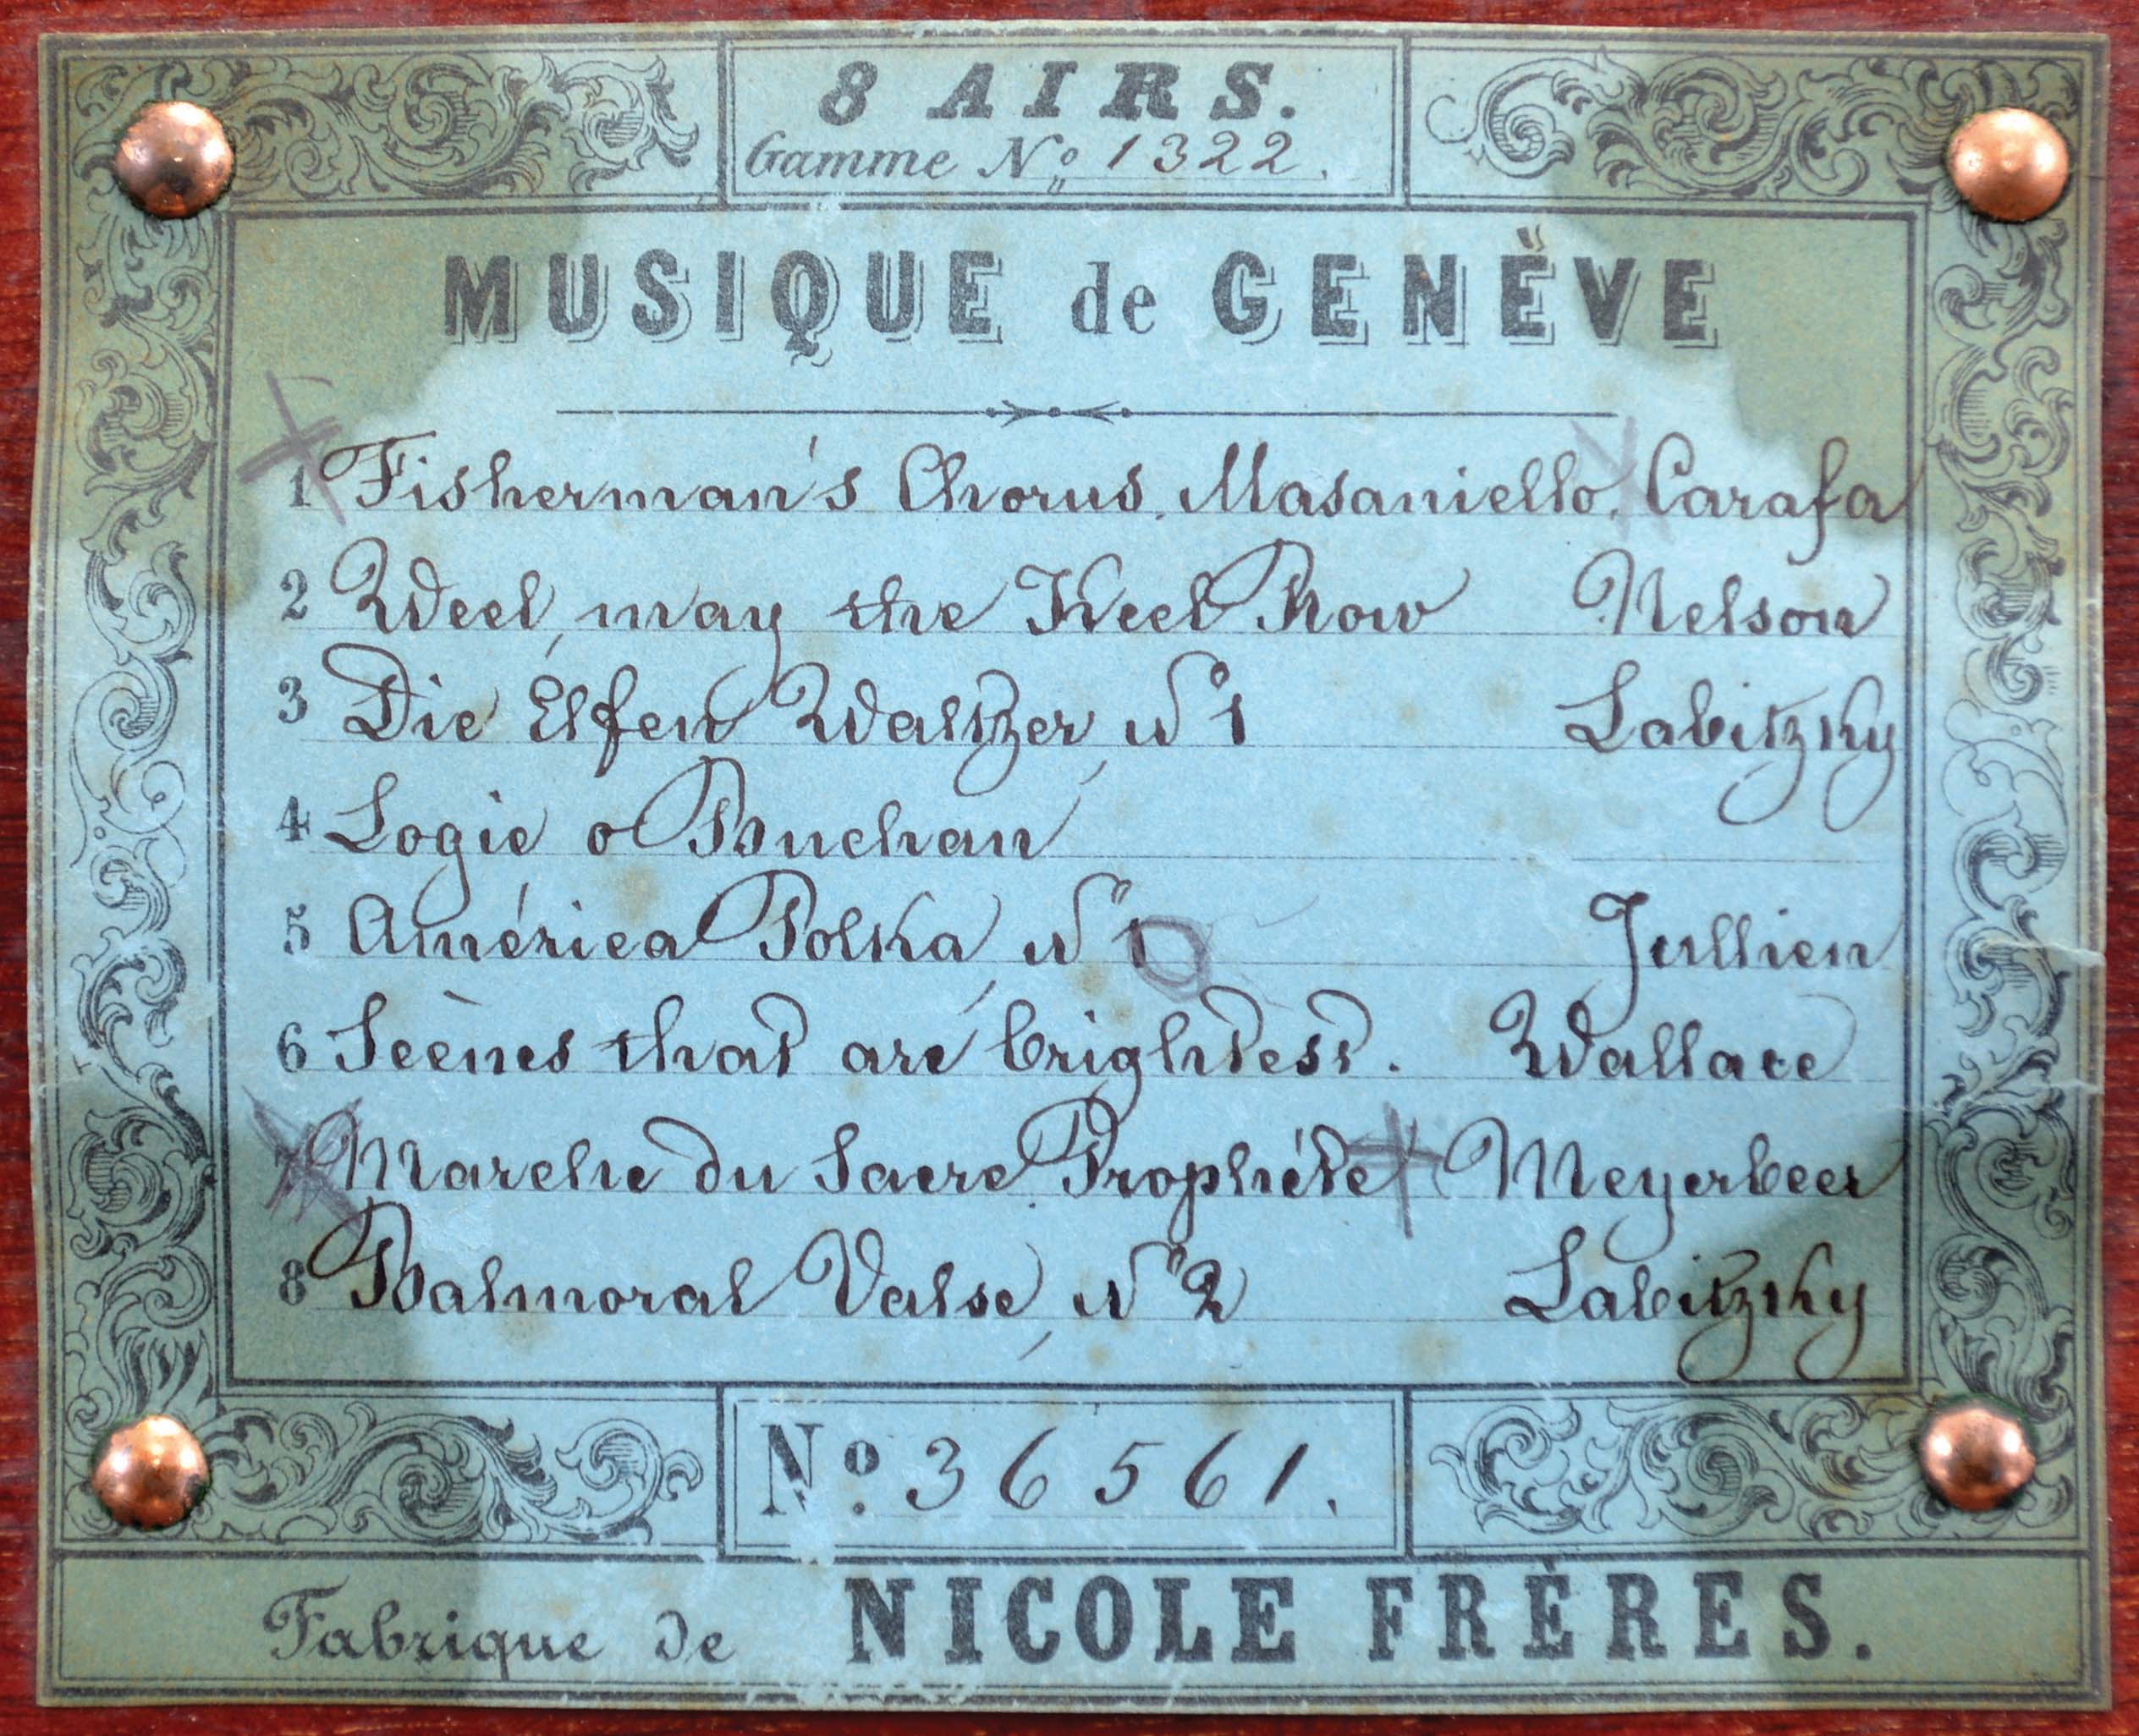 8 AIRS.
Gamme Nº 1322.
MUSIQUE de GENÈVE
1 Fisherman's Chorus. Masaniello. Carafa
2 Weel may the Keel Row Nelson
3 Die Elfen Waltzer Nº 1 Labitzky
4 Logie o Buchan
5 América Polka Nº 1 Jullien
6 Scènes that are brightest. Wallace
7 Marche du Sacre Prophéte Meyerbeer
8 Balmoral Valse Nº 2 Labitzky
Nº. 36561.
Fabrique de NICOLE FRÈRES.